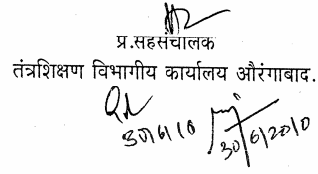 प्र.सहसंचालक
तंत्रशिक्षण विभागीय कार्यालय औरंगाबाद.
30/6/10 30/6/2010